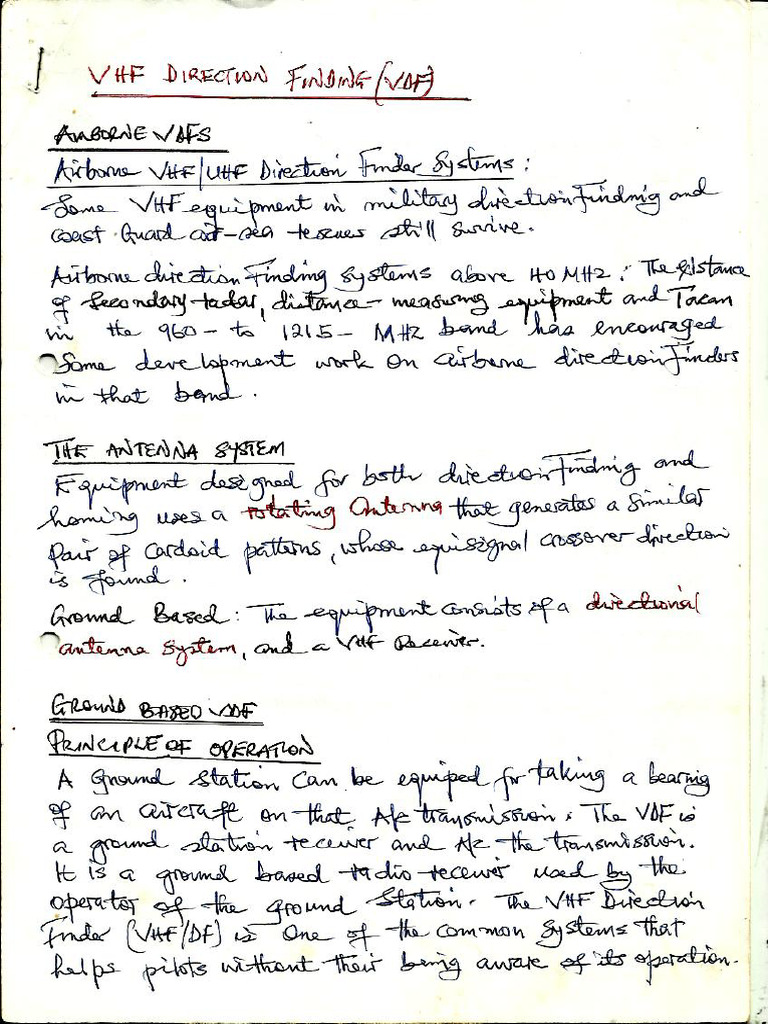 VHF DIRECTION FINDING (VDF)
AIRBORNE VDFS
Airborne VHF/UHF Direction Finder Systems:
Some VHF equipment in military direction Finding and
coast Guard air-sea rescues still survive.
Airborne direction Finding systems above 40 MHz: The existance
of Secondary radar, distance-measuring equipment and Tacan
in the 960- to 1215- MHz band has encouraged
Some development work on airborne direction Finders
in that band.
THE ANTENNA SYSTEM
Equipment designed for both direction Finding and
homing uses a rotating Antenna that generates a similar
pair of Cardoid patterns, whose equisignal crossover direction
is found.
Ground Based: The equipment consists of a directional
antenna system, and a VHF Receiver.
GROUND BASED VDF
PRINCIPLE OF OPERATION
A Ground Station Can be equiped for taking a bearing
of an aircraft on that A/c transmission. The VDF is
a ground station receiver and A/c the transmission.
It is a ground based radio receiver used by the
operator of the ground Station. The VHF Direction
Finder (VHF/DF) is One of the common Systems that
helps pilots without their being aware of its operation.